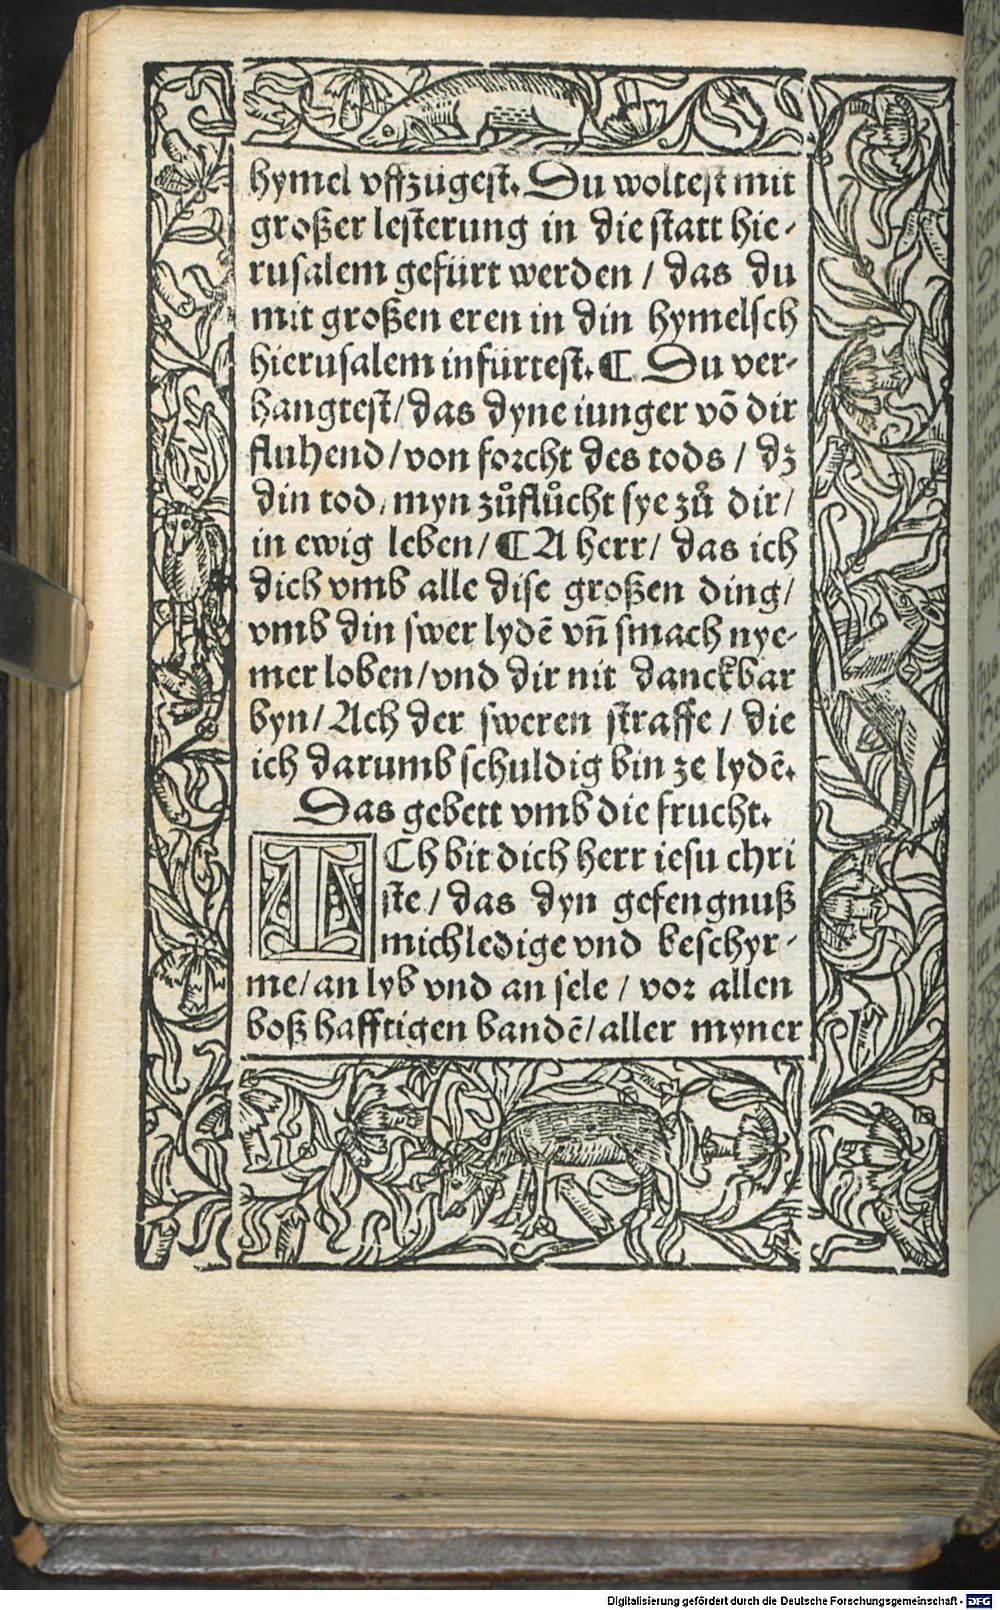 hymel vffzůgest. Du woltest mit
großer lesterung in die statt hie-
rusalem gefürt werden / das du
mit großen eren in din hymelsch
hierusalem infürtest. ¶ Du ver-
hangtest / das dyne iunger võ dir
fluhend / von forcht des tods / dz
din tod, myn zůflůcht sye zů dir /
in ewig leben / ¶ A herr / das ich
dich vmb alle dise großen ding /
vmb din swer lydẽ vñ smach nye-
mer loben / vnd dir nit danckbar
byn / Ach der sweren straffe / die
ich darumb schuldig bin ze lydẽ.
Das gebett vmb die frucht.
ICh bit dich herr iesu chri
ste / das dyn gefengnuß
mich ledige vnd beschyr-
me / an lyb vnd an sele / vor allen
boßhafftigen bandẽ / aller myner
Digitalisierung gefördert durch die Deutsche Forschungsgemeinschaft - DFG